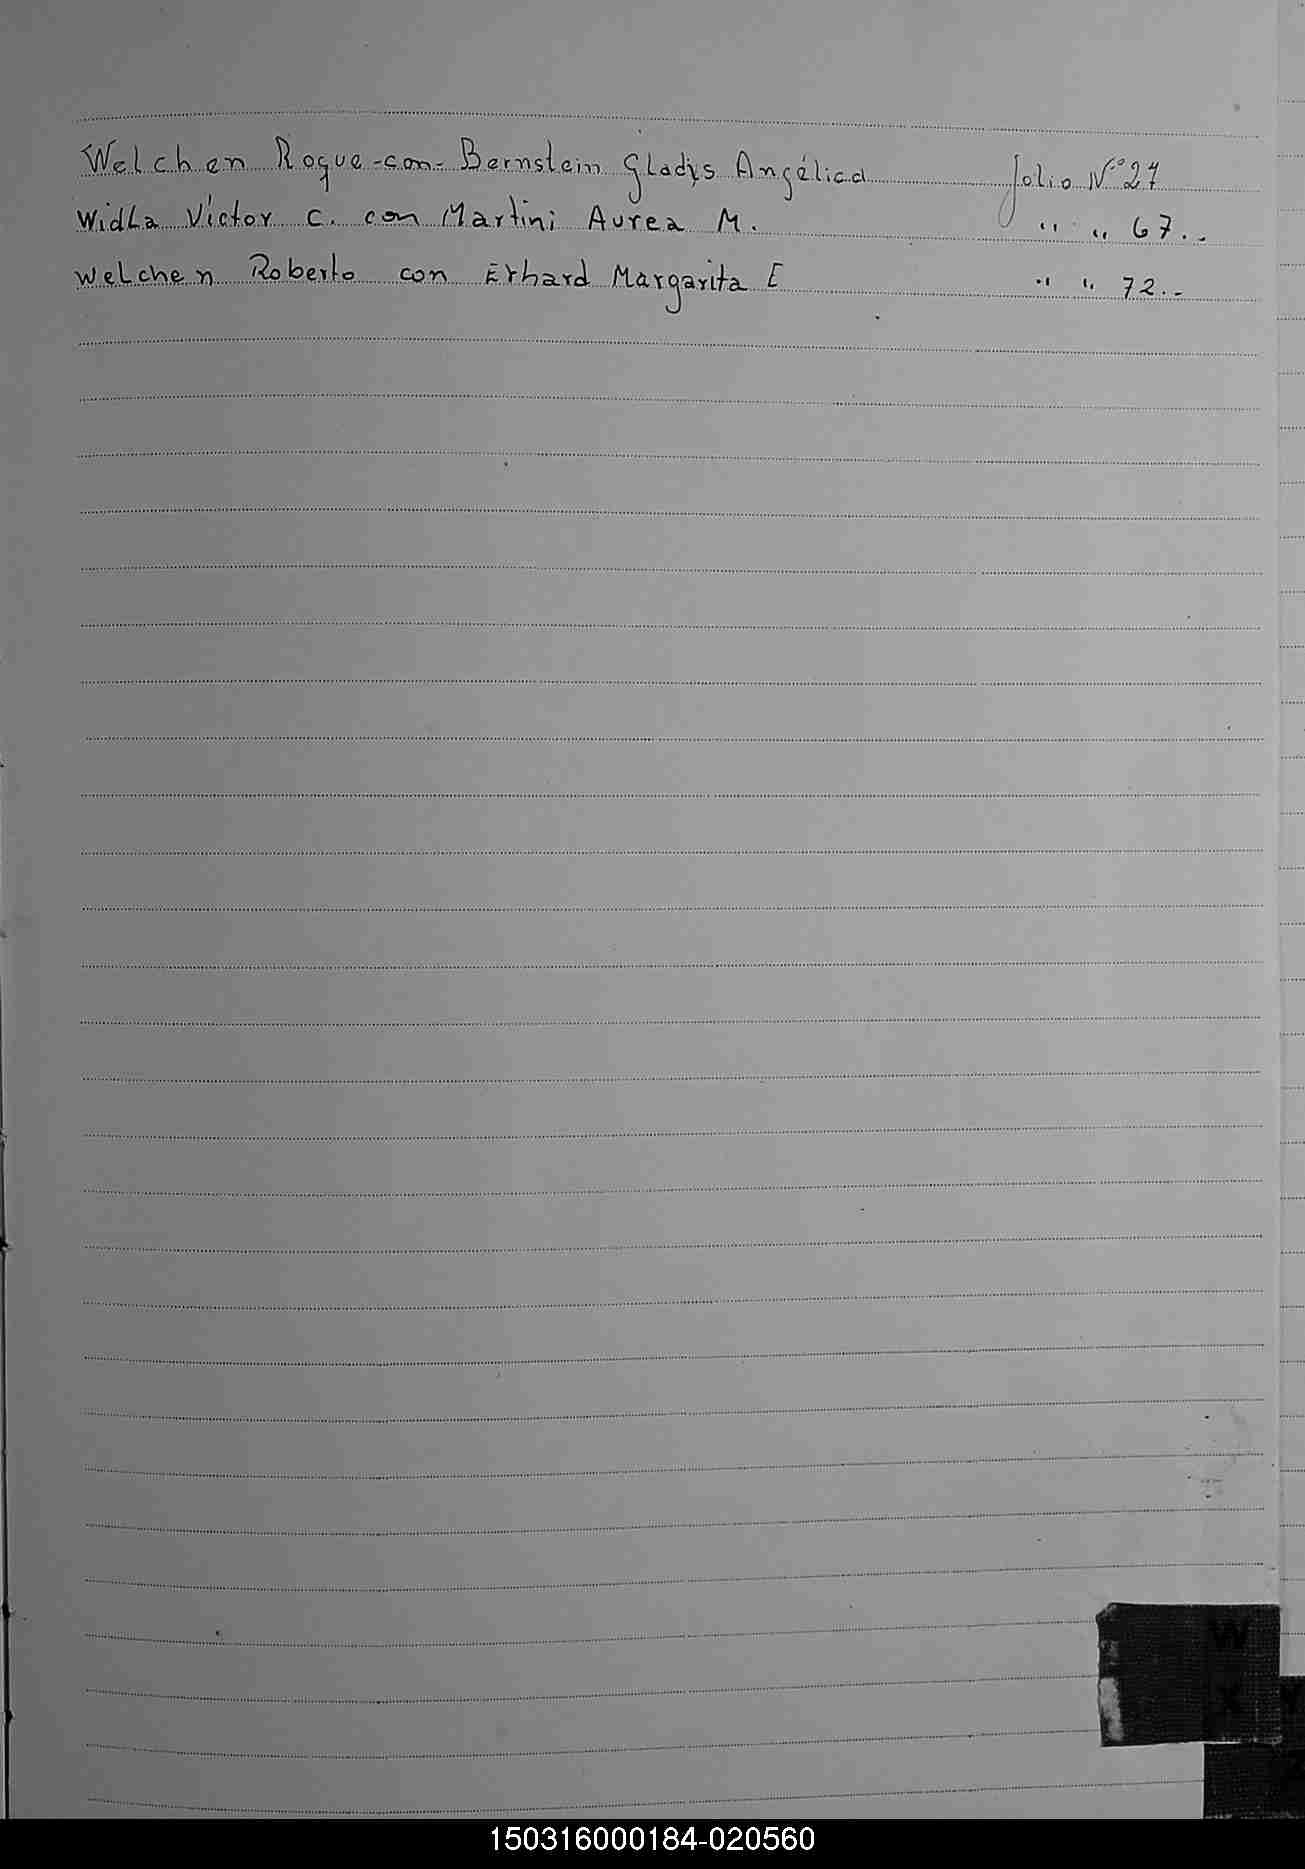 Welchen Roque - con - Bernstein Gladys Angélica folio Nº 27
Widla Victor C. con Martini Aurea M. " " 67.-
Welchen Roberto con Erhard Margarita E " " 72.-
W
X
Y
150316000184-020560